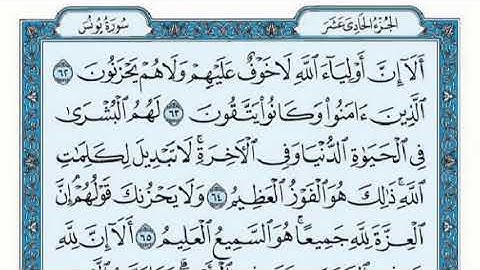 الجزء الحادي عشر
سورة يونس
أَلَآ إِنَّ أَوْلِيَآءَ ٱللَّهِ لَا خَوْفٌ عَلَيْهِمْ وَلَا هُمْ يَحْزَنُونَ ٦٢
ٱلَّذِينَ ءَامَنُوا۟ وَكَانُوا۟ يَتَّقُونَ ٦٣ لَهُمُ ٱلْبُشْرَىٰ
فِى ٱلْحَيَوٰةِ ٱلدُّنْيَا وَفِى ٱلْـَٔاخِرَةِ ۚ لَا تَبْدِيلَ لِكَلِمَـٰتِ
ٱللَّهِ ۚ ذَٰلِكَ هُوَ ٱلْفَوْزُ ٱلْعَظِيمُ ٦٤ وَلَا يَحْزُنكَ قَوْلُهُمْ ۘ إِنَّ
ٱلْعِزَّةَ لِلَّهِ جَمِيعًا ۚ هُوَ ٱلسَّمِيعُ ٱلْعَلِيمُ ٦٥ أَلَآ إِنَّ لِلَّهِ